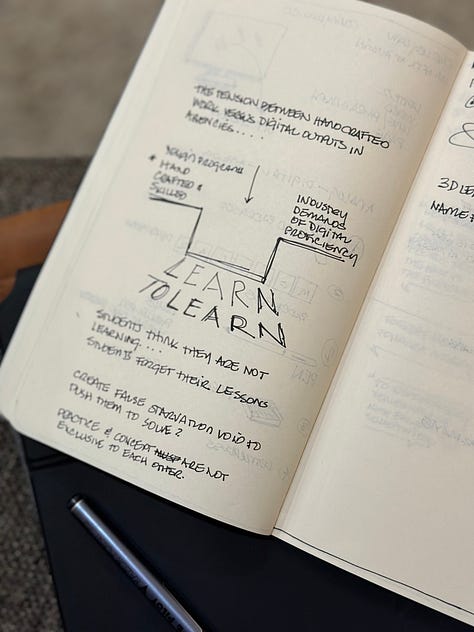 THE TENSION BETWEEN HANDCRAFTED
WORK VERSUS DIGITAL OUTPUTS IN
AGENCIES....
DESIGN PROGRAMS
HAND
CRAFTED &
SKILLED
INDUSTRY
DEMANDS
OF DIGITAL
PROFICIENCY
LEARN
TO LEARN
STUDENTS THINK THEY ARE NOT
LEARNING....
STUDENTS FORGET THEIR LESSONS
CREATE FALSE STARVATION VOID TO
PUSH THEM TO SOLVE?
PRACTICE & CONCEPT ARE NOT
EXCLUSIVE TO EACH OTHER.
3D
NAME